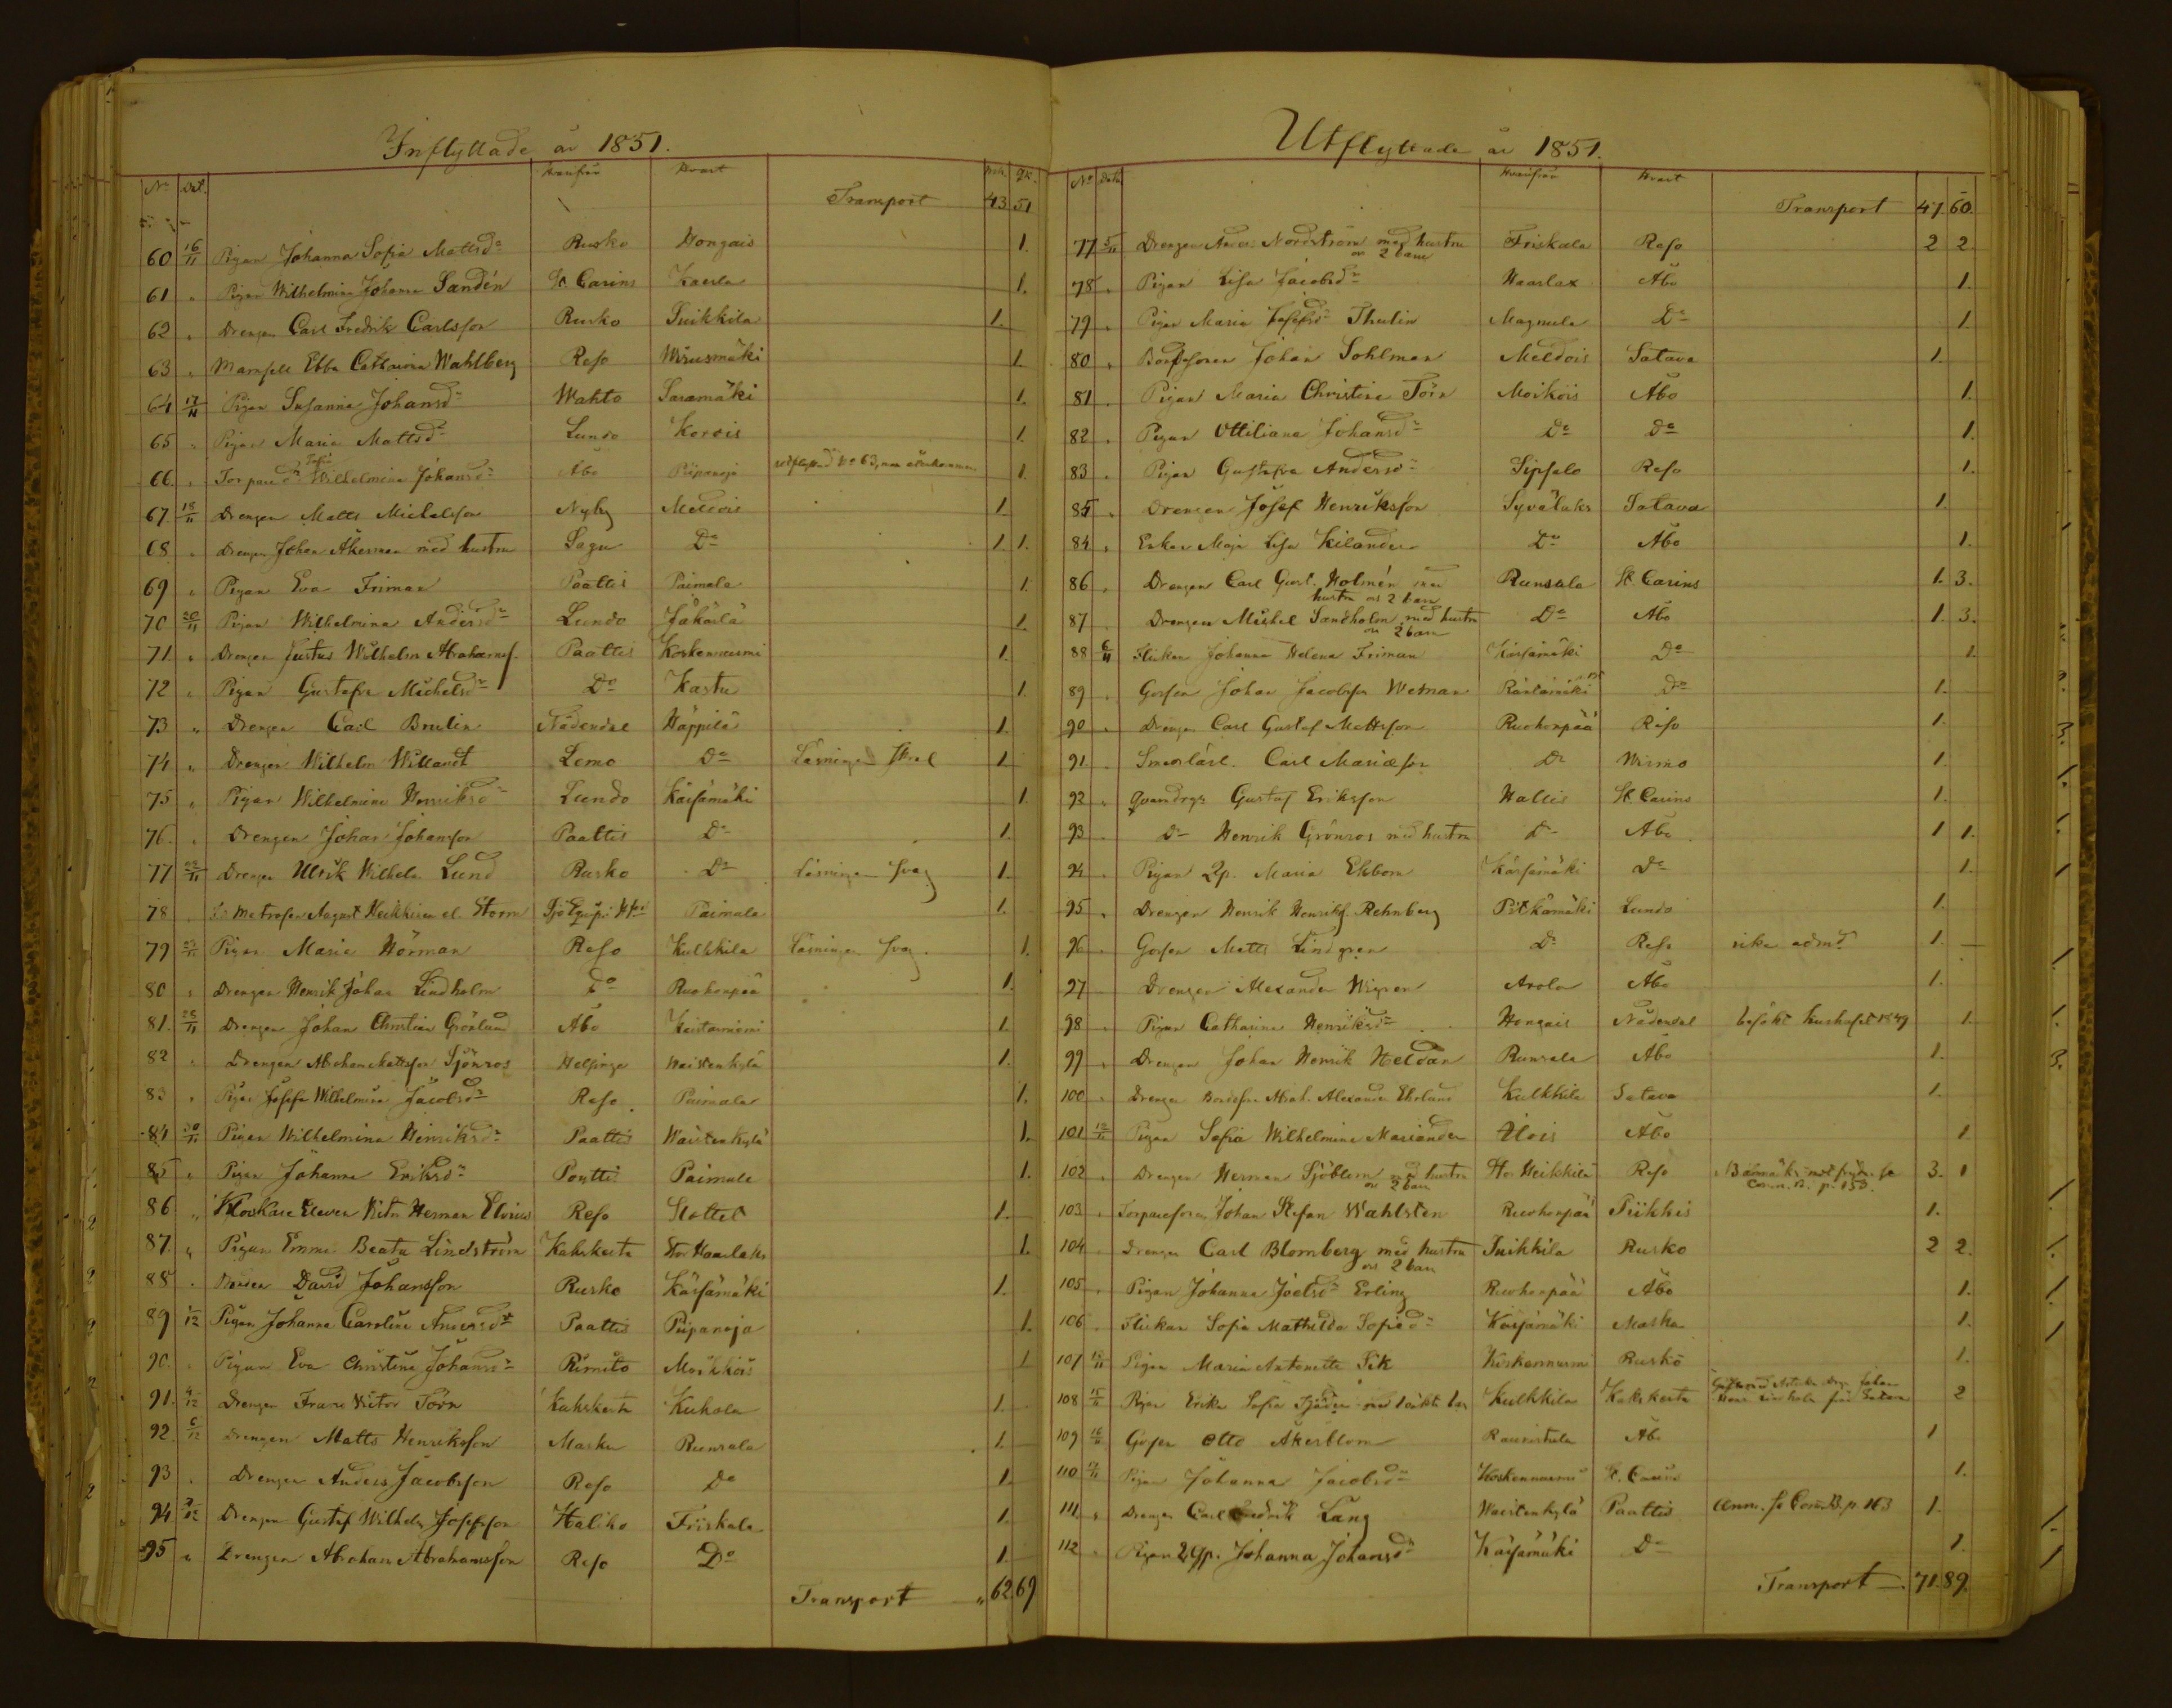 Inflyttade år 1851.
No Dat. Hvarifrån Hvart Mk. Qk.
Transport 43 51
60 16/11 Pigan Johanna Sofia Mattsdr Rusko Hongais 1.
61 " Pigan Wilhelmina Johanna Sandén St Carins Kaerla 1.
62 " Drengen Carl Fredrik Carlsson Rusko Suikkila 1.
63 " Mamsell Ebba Catharina Wahlberg Reso Wirusmäki 1
64 17/11 Pigan Susanna Johansdr Wahto Saramäki 1.
65 " Pigan Maria Mattsdr Lundo Korois 1.
66. " Torparedr Wilhelmina Johansdr Åbo Piipanoja utflyttad No 63, 1.
67. 18/11 Drengen Matts Michelsson Nyby Meldois 1.
68 " Drengen Johan Åkerman med hustru Sagu Do 1 1.
69 " Pigan Eva Friman Paattis Paimala 1.
70 20/11 Pigan Wilhelmina Andersdr Lundo Jäkärlä 1.
71. " Drengen Justus Wilhelm Abrahamsf. Paattis Koskennurmi 1.
72 " Pigan Gustafva Michelsdr Do Kastu 1.
73 " Drengen Carl Brulin Nådendal Häppilä 1.
74 " Drengen Wilhelm Willandt Lemo Do Läsningen skral 1
75 " Pigan Wilhelmina Henriksdr Lundo Kärsämäki 1.
76. " Drengen Johan Johansson Paattis Do 1.
77 22/11 Drengen Ulrik Wilhelm Lund Rusko Do Läsningen svag 1.
78 Matrosen August Heikkinen el. Storm Sjö Equip. Paimala 1.
79 23/11 Pigan Maria Hörman Reso Kulkkila Läsningen svag. 1.
80 " Drengen Henrik Johan Lindholm Do Ruohonpää 1.
81. 25/11 Drengen Johan Christian Grönlund Åbo Kastarniemi 1.
82 " Drengen Abraham Mattsson Sjönros Helsinge Waistenkylä 1.
83 " Pigan Josefa Wilhelmina Jacobsdr Reso Paimala 1.
84 30/11 Pigan Wilhelmina Henriksdr Paattis Waistenkylä 1.
85 " Pigan Johanna Eriksdr Paattis Paimala 1.
86 " Klockare Eleven Victor Herman Elvius Reso Slottet 1.
87. " Pigan Emma Beata Lindström Kakskerta Stor Haarlaks 1.
88 " David Johansson Rusko Kärsämäki 1.
89 1/12 Pigan Johanna Carolina Andersdr Paattis Piipanoja 1.
90. " Pigan Eva Christina Johansdr Rimito Moikkois 1
91. 4/12 Drengen Frans Victor Törn Kakskerta Kuhola 1.
92. 6/12 Drengen Matts Henriksson Masku Runsala 1.
93 . Drengen Anders Jacobsson Reso Do 1.
94 9/12 Drengen Gustaf Wilhelm Josefsson Haliko Friskala 1.
95 " Drengen Abraham Abrahamsson Reso Do 1.
Transport " 62 69
Utflyttade år 1851.
No Data Hvarifrån Hvart
Transport 47. 60.
77 5/11 Drengen Anders Nordström med hustru Friskala Reso 2 2
o. 2 barn
78 " Pigan Lisa Jacobsdr Haarlax Åbo 1.
79 " Pigan Maria Josefsdr Thulin Magnula Do 1.
80 " Bondsonen Johan Sohlman Meldois Satava 1.
81 . Pigan Maria Christina Törn Moikois Åbo 1.
82 . Pigan Ottiliana Johansdr Do Do 1.
83 . Pigan Gustafva Andersdr Sipsalo Reso 1.
85 " Drengen Josef Henriksson Syvälaks Satava 1.
84 " Enkan Maja Lisa Kilander Do Åbo 1.
86 . Drengen Carl Gust. Holmén med Runsala St. Carins 1. 3.
hustru o. 2 barn
87 Drengen Michel Sandholm med hustru Do Åbo 1. 3.
o. 2 barn
88 6/11 Flickan Johanna Helena Friman Kärsämäki Do 1.
89 . Gossen Johan Jacobsson Wetman Räntämäki Do 1.
90 . Drengen Carl Gustaf Mattsson Ruohonpää Reso 1.
91 . Smedslärl. Carl Mariæson Do Wirmo 1.
92 " Qvarndrgn Gustaf Eriksson Hallis St. Carins 1.
93 . Do Henrik Grönros med hustru Do Åbo 1 1.
94 . Pigan Maria Ekbom Kärsämäki Do 1.
95 . Drengen Henrik Henriksf. Rehnberg Pitkämäki Lundo 1.
96 . Gossen Matts Lindgren Do Reso icke admd. 1. —
97 Drengen Alexander Wigren Arola Åbo 1.
98 . Pigan Catharina Henriksdr Hongais Nådendal besökt hushofet 1849 1.
99 . Drengen Johan Henrik Heldan Runsala Åbo 1.
100 . Drengen Bondeson Abrah. Alexander Ekelund Kulkkila Satava 1.
101 12/11 Pigan Sofia Wilhelmina Mariander Ilois Åbo 1
102 . Drengen Herman Sjöblom med hustru Stor Heikkilä Reso 3. 1
o. 2 barn Comm. B. p. 153.
103 . Torparesonen Johan Stefan Wahlsten Ruohonpää Piikkis 1.
104 Drengen Carl Blomberg med hustru Suikkila Rusko 2 2.
o. 2 barn
105 . Pigan Johanna Joelsdr Erling Ruohonpää Åbo 1.
106 . Flickan Sofia Mathilda Sofiædr Kärsämäki Masku 1.
107 Pigan Maria Antonetta Sik Koskennurmi Rusko 1.
108 15/11 Pigan Erika Sofia Sjödén med 1 oäkta barn Kulkkila Kakskerta 2
109 16/11 Gossen Otto Åkerblom Raunistula Åbo 1
110 Pigan Johanna Jacobsdr Koskennurmi St. Carins 1.
111. " Drengen Carl Fredrik Lång Waistenkylä Paattis Anm. se Com.B. p. 163 1.
112 Pigan Johanna Johansdr Kärsämäki Do 1.
Transport —. 71. 89.